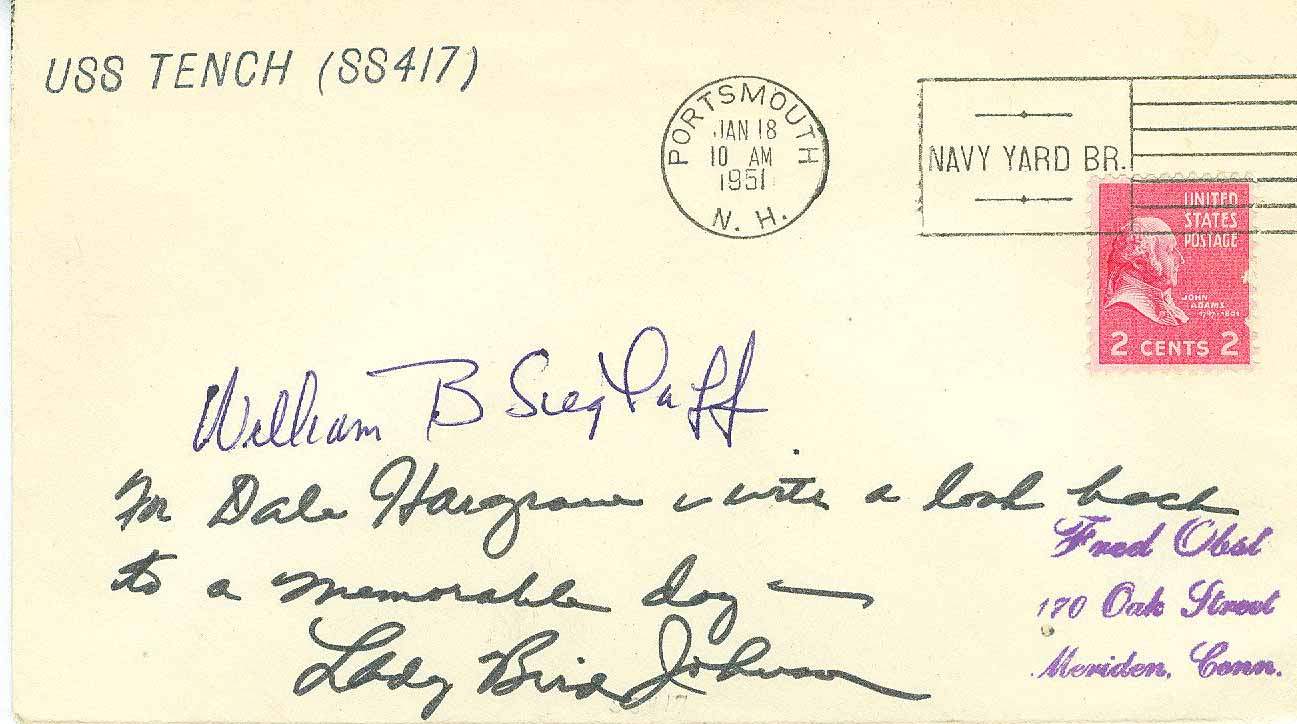 USS TENCH (SS417)
PORTSMOUTH
JAN 18
10 AM
1951
N. H.
NAVY YARD BR.
UNITED
STATES
POSTAGE
JOHN
ADAMS
1797-1801
2 CENTS 2
William B Sieglaff
For Dale Hargrave with a look back
to a memorable day —
Lady Bird Johnson
Fred Obst
170 Oak Street
Meriden, Conn.